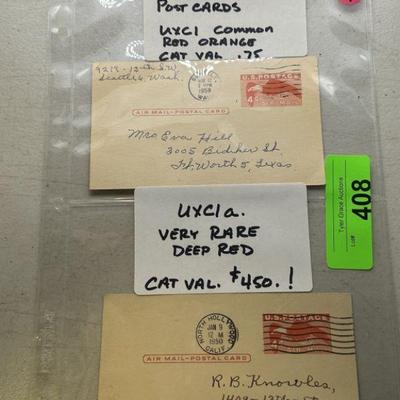 POST CARDS
UXC1 COMMON
RED ORANGE
CAT VAL .75
9218-12th S.W.
Seattle 6, Wash.
1950
U.S. POSTAGE
4¢ AIR MAIL
AIR MAIL-POSTAL CARD
Mrs Eva Hill
3005 St
Ft. Worth 5, Texas
UXC1a.
VERY RARE
DEEP RED
CAT VAL. $450.!
Tyler Grace Auctions
Lot#
408
NORTH HOLLYWOOD
JAN 9
12 M
1950
CALIF.
U.S. POSTAGE
AIR MAIL-POSTAL CARD
R.B. Knowles,